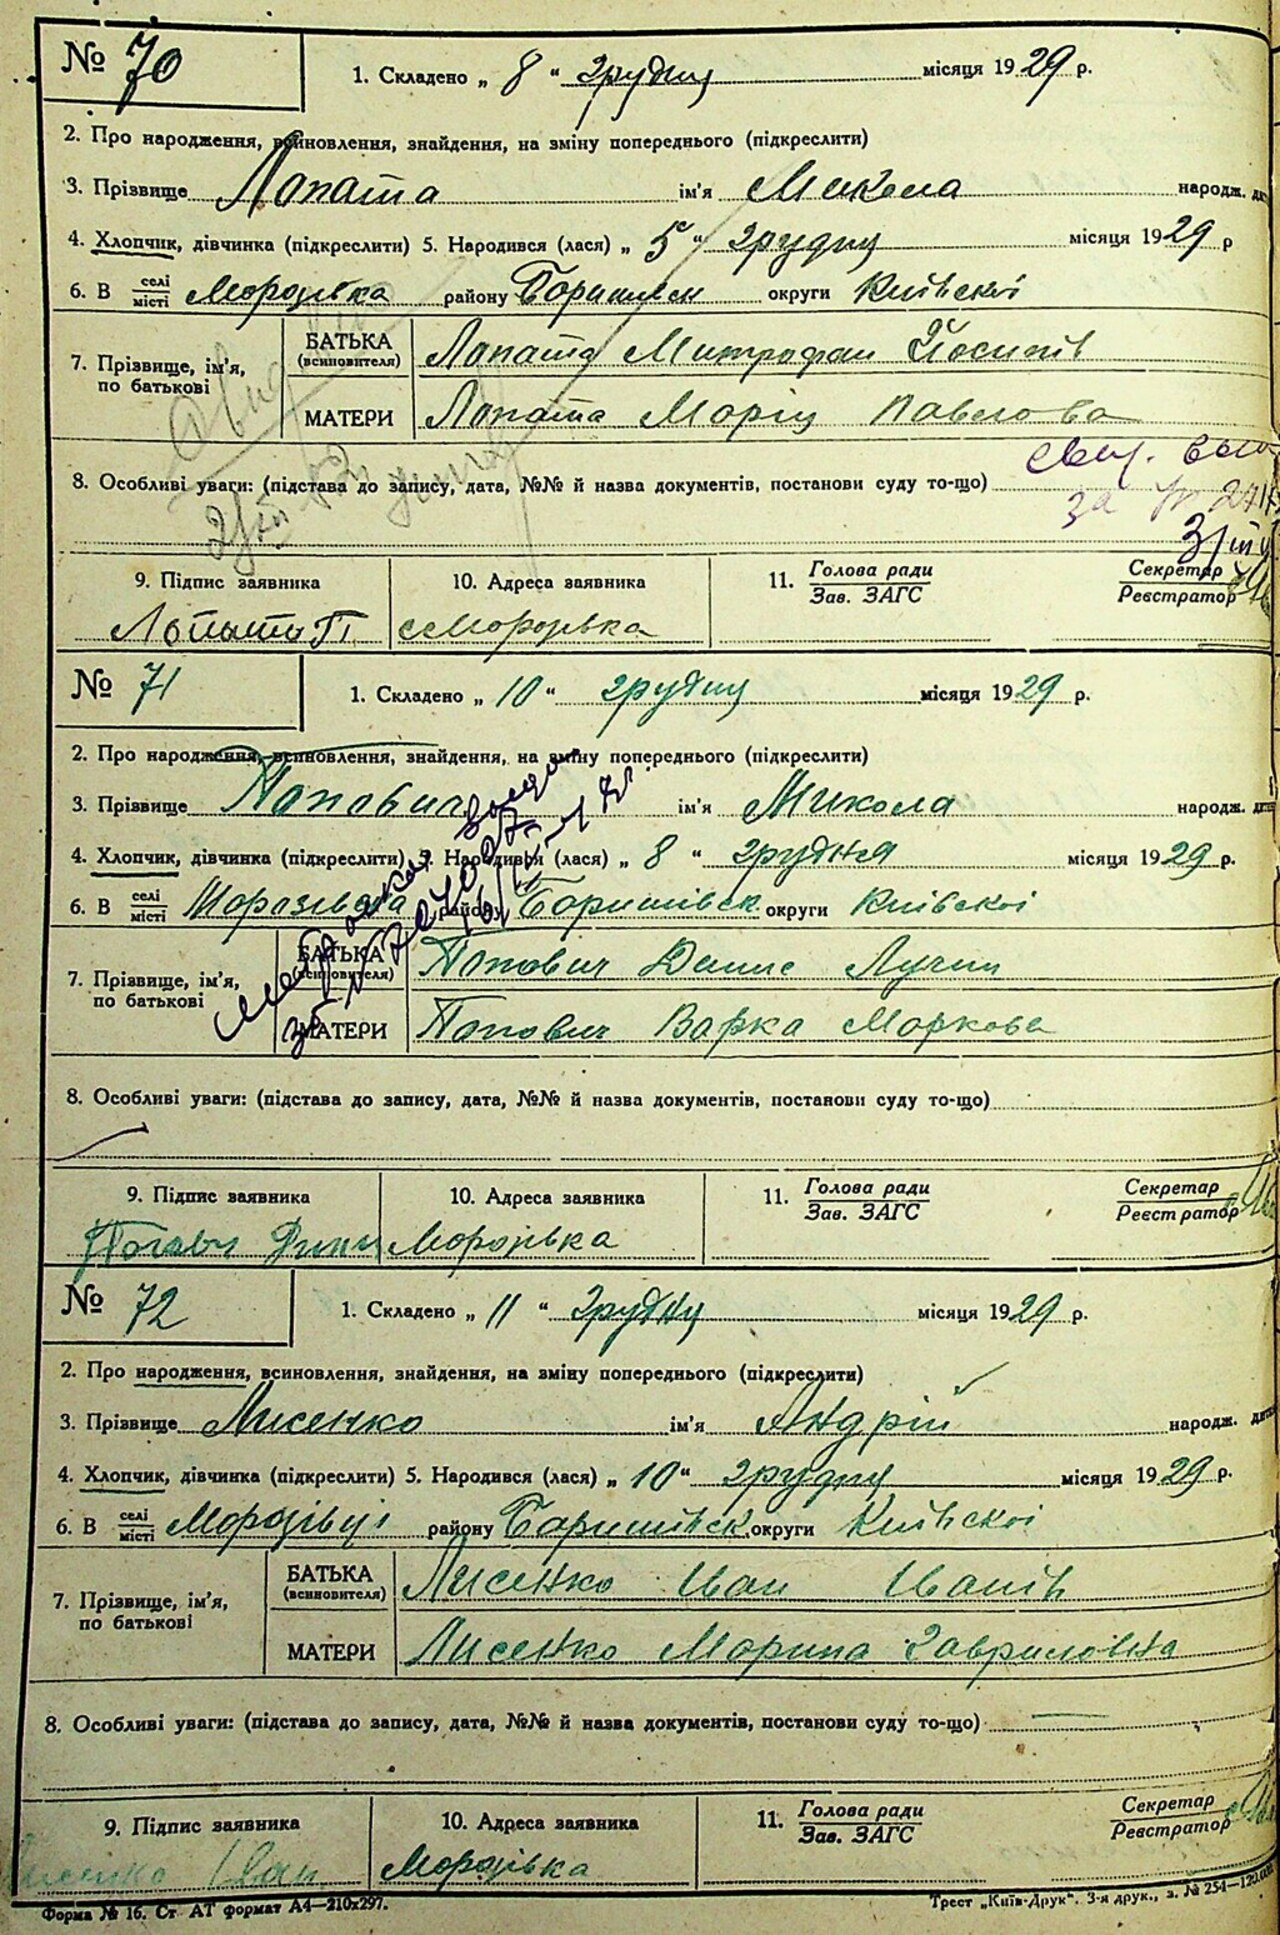 № 70
1. Складено „ 8 “ Грудня місяця 1929 р.
2. Про народження, всиновлення, знайдення, на зміну попереднього (підкреслити)
3. Прізвище Лопата ім'я Микола народж.
4. Хлопчик, дівчинка (підкреслити) 5. Народився (лася) „ 5 “ грудня місяця 1929 р
6. В селі місті Морозівка району Баришівск округи Київскої
7. Прізвище, ім'я, по батькові
БАТЬКА (всиновителя) Лопата Митрофан Йосипів
МАТЕРИ Лопата Марія Павлова
8. Особливі уваги: (підстава до запису, дата, №№ й назва документів, постанови суду то-що)
9. Підпис заявника 10. Адреса заявника 11. Голова ради Зав. ЗАГС Секретар Реєстратор
Морозівка
№ 71
1. Складено „ 10 “ грудня місяця 1929 р.
2. Про народження, всиновлення, знайдення, на зміну попереднього (підкреслити)
3. Прізвище Попович ім'я Микола народж.
4. Хлопчик, дівчинка (підкреслити) 5. Народився (лася) „ 8 “ грудня місяця 1929 р.
6. В селі місті Морозівка району Баришівск округи Київскої
7. Прізвище, ім'я, по батькові
БАТЬКА (всиновителя) Попович Денис Лучин
МАТЕРИ Попович Варка Маркова
8. Особливі уваги: (підстава до запису, дата, №№ й назва документів, постанови суду то-що)
9. Підпис заявника 10. Адреса заявника 11. Голова ради Зав. ЗАГС Секретар Реєстратор
Морозівка
№ 72
1. Складено „ 11 “ Грудня місяця 1929 р.
2. Про народження, всиновлення, знайдення, на зміну попереднього (підкреслити)
3. Прізвище Лисенко ім'я Андрій народж.
4. Хлопчик, дівчинка (підкреслити) 5. Народився (лася) „ 10 “ грудня місяця 1929 р.
6. В селі місті Морозівці району Баришівск округи Київскої
7. Прізвище, ім'я, по батькові
БАТЬКА (всиновителя) Лисенко Іван Іванів
МАТЕРИ Лисенко Марина Гавриловна
8. Особливі уваги: (підстава до запису, дата, №№ й назва документів, постанови суду то-що)
9. Підпис заявника 10. Адреса заявника 11. Голова ради Зав. ЗАГС Секретар Реєстратор
Іван Морозівка
Форма № 16. Ст АТ формат А4—210х297. Трест „Київ-Друк“. 3-я друк., з. № 254—